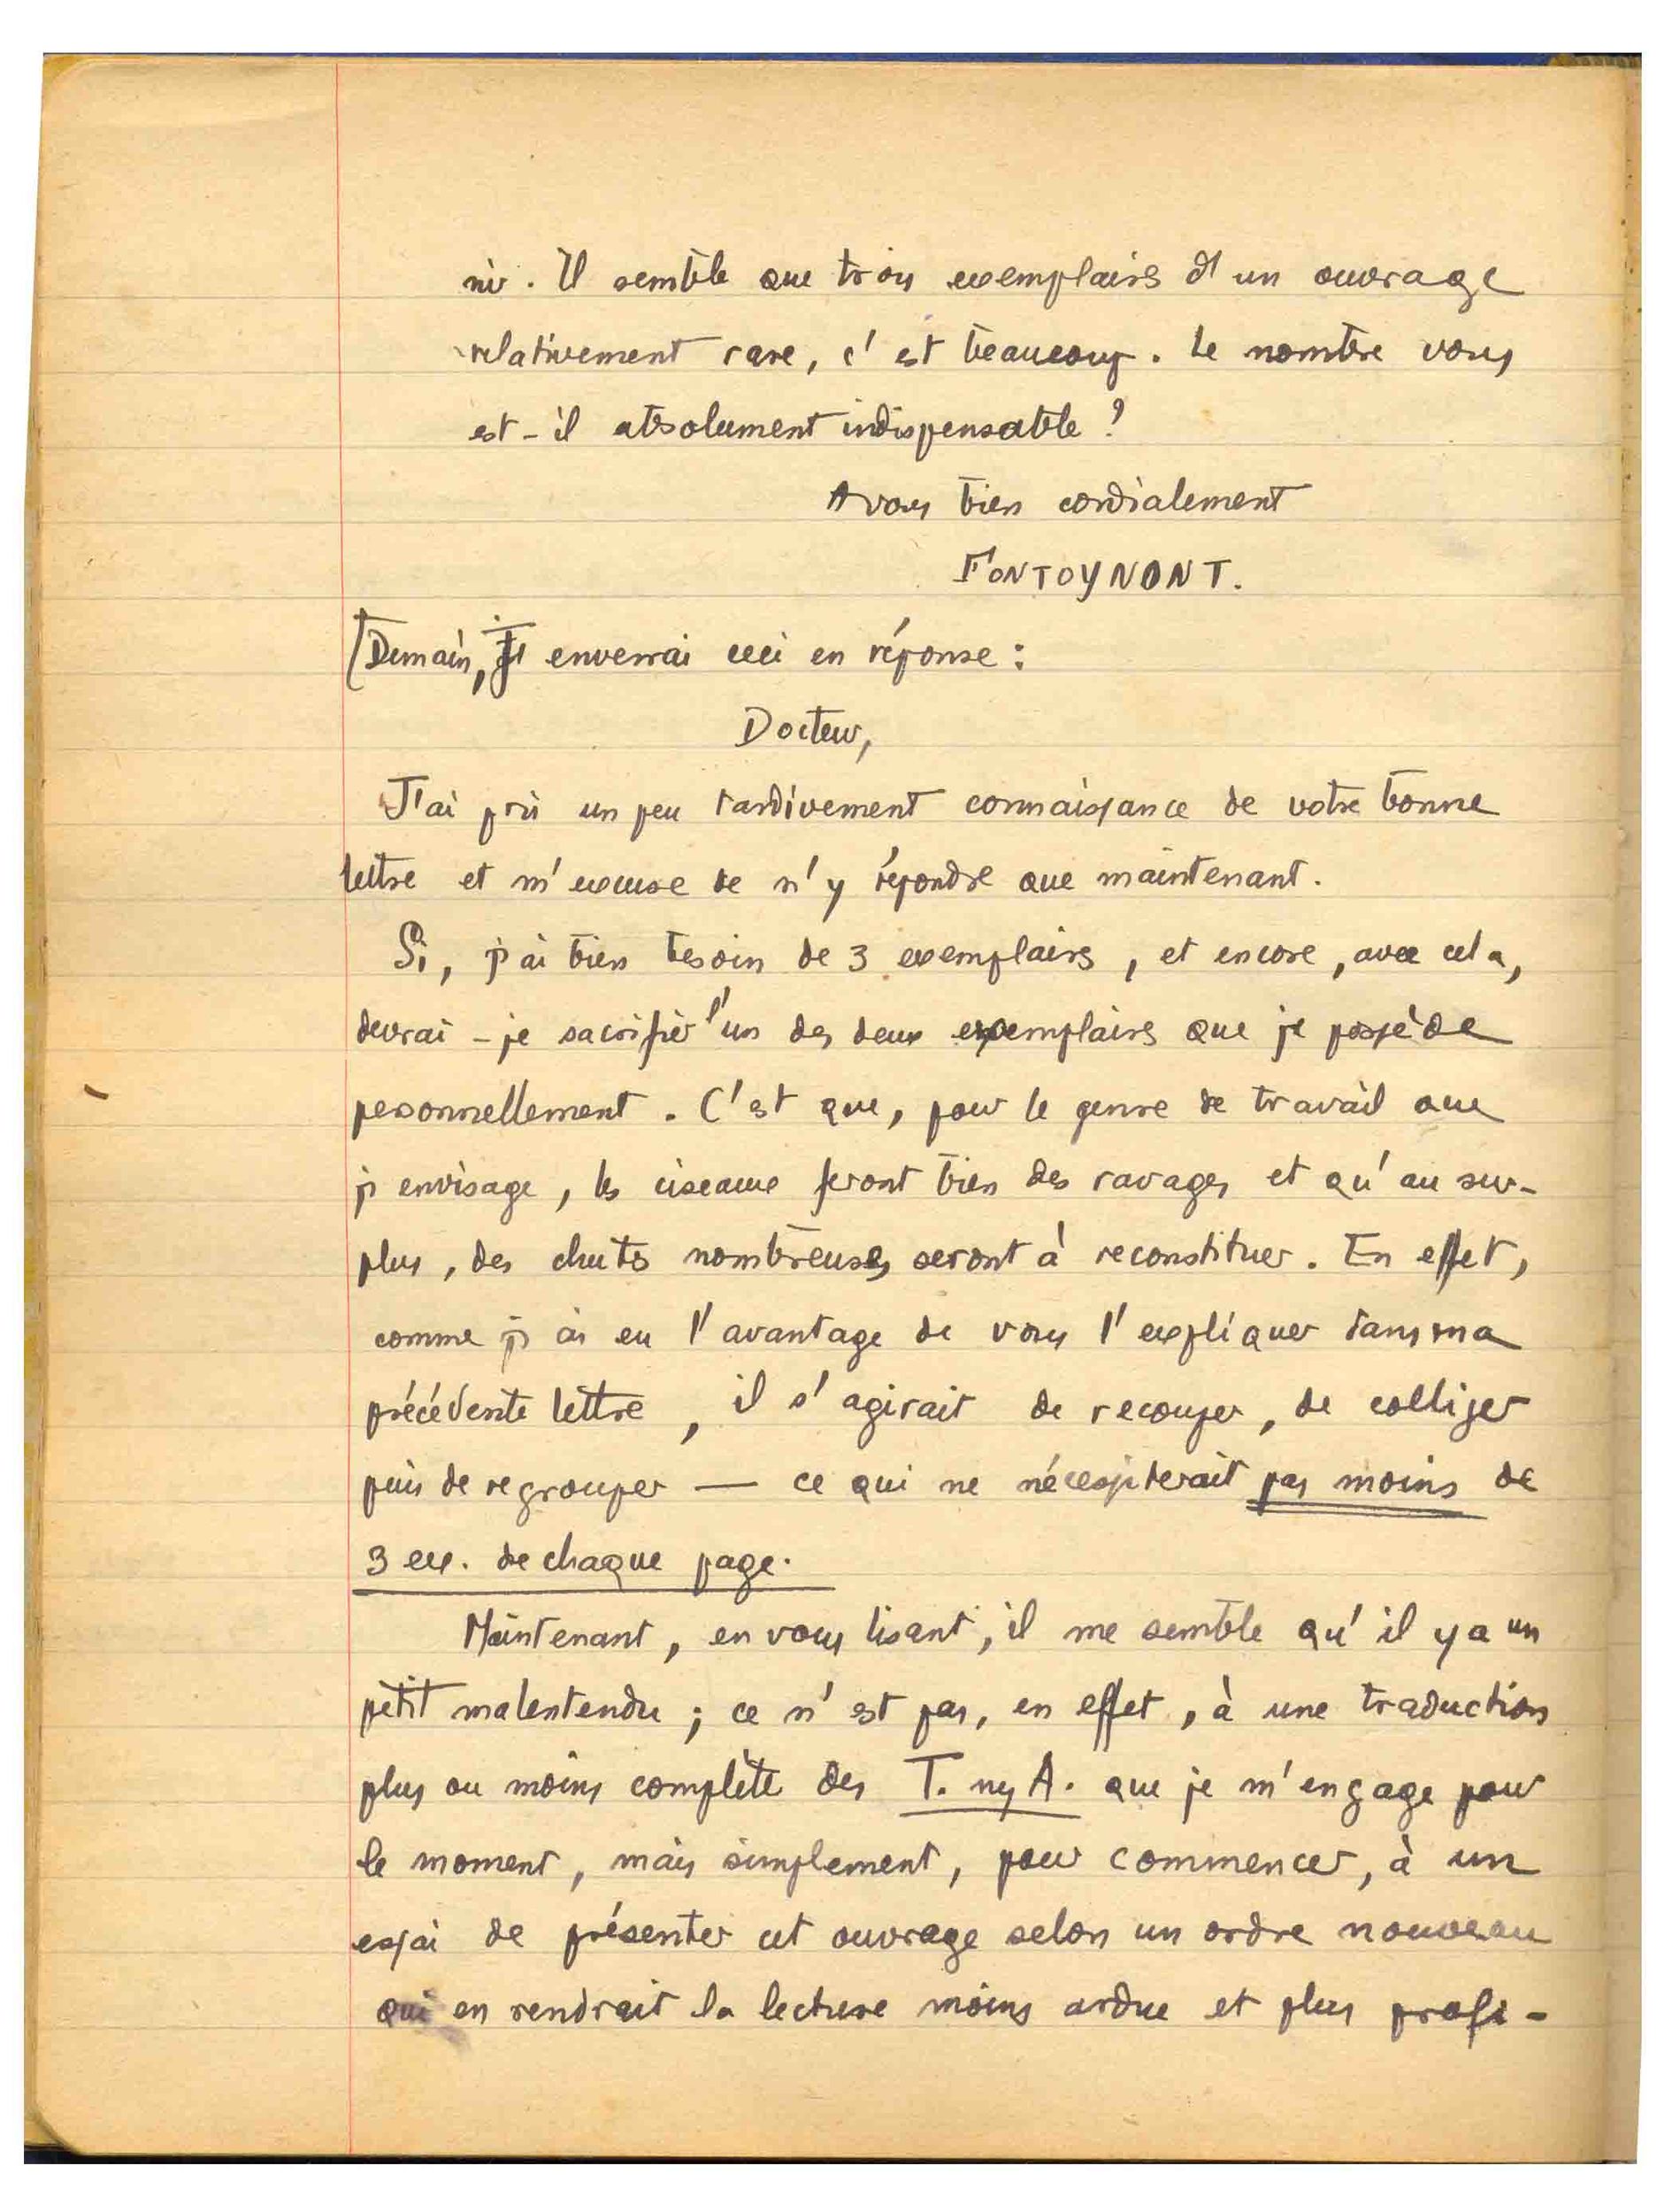 nir. Il semble que trois exemplaires d'un ouvrage
relativement rare, c'est beaucoup. Le nombre vous
est-il absolument indispensable?
A vous bien cordialement
FONTOYNONT.
Demain, j'enverrai ceci en réponse:
Docteur,
J'ai pris un peu tardivement connaissance de votre bonne
lettre et m'excuse de n'y répondre que maintenant.
Si, j'ai bien besoin de 3 exemplaires, et encore, avec cela,
devrai-je sacrifier l'un des deux exemplaires que je possède
personnellement. C'est que, pour le genre de travail que
j'envisage, les ciseaux feront bien des ravages et qu'au sur-
plus, des chutes nombreuses seront à reconstituer. En effet,
comme j'ai eu l'avantage de vous l'expliquer dans ma
précédente lettre, il s'agirait de recouper, de colliger
puis de regrouper — ce qui ne nécessiterait pas moins de
3 ex. de chaque page.
Maintenant, en vous lisant, il me semble qu'il y a un
petit malentendu; ce n'est pas, en effet, à une traduction
plus ou moins complète des T. ny A. que je m'engage pour
le moment, mais simplement, pour commencer, à un
essai de présenter cet ouvrage selon un ordre nouveau
qui en rendrait la lecture moins ardue et plus profi-